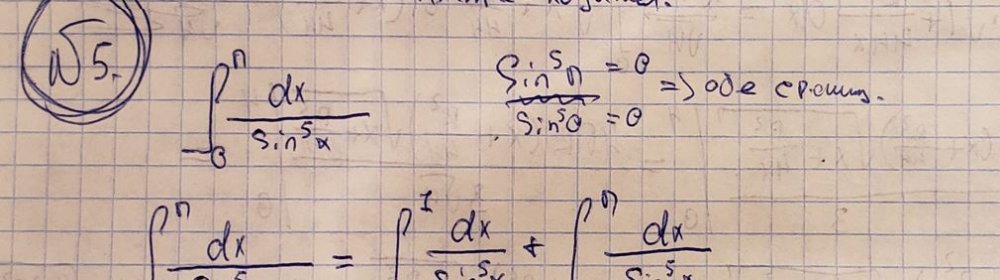 №5.
∫₀^π dx / sin⁵x
sin⁵π = 0
sin⁵0 = 0
=> обе границ.
∫^π dx / sin⁵ = ∫^1 dx / sin⁵x + ∫^π dx / sin⁵x